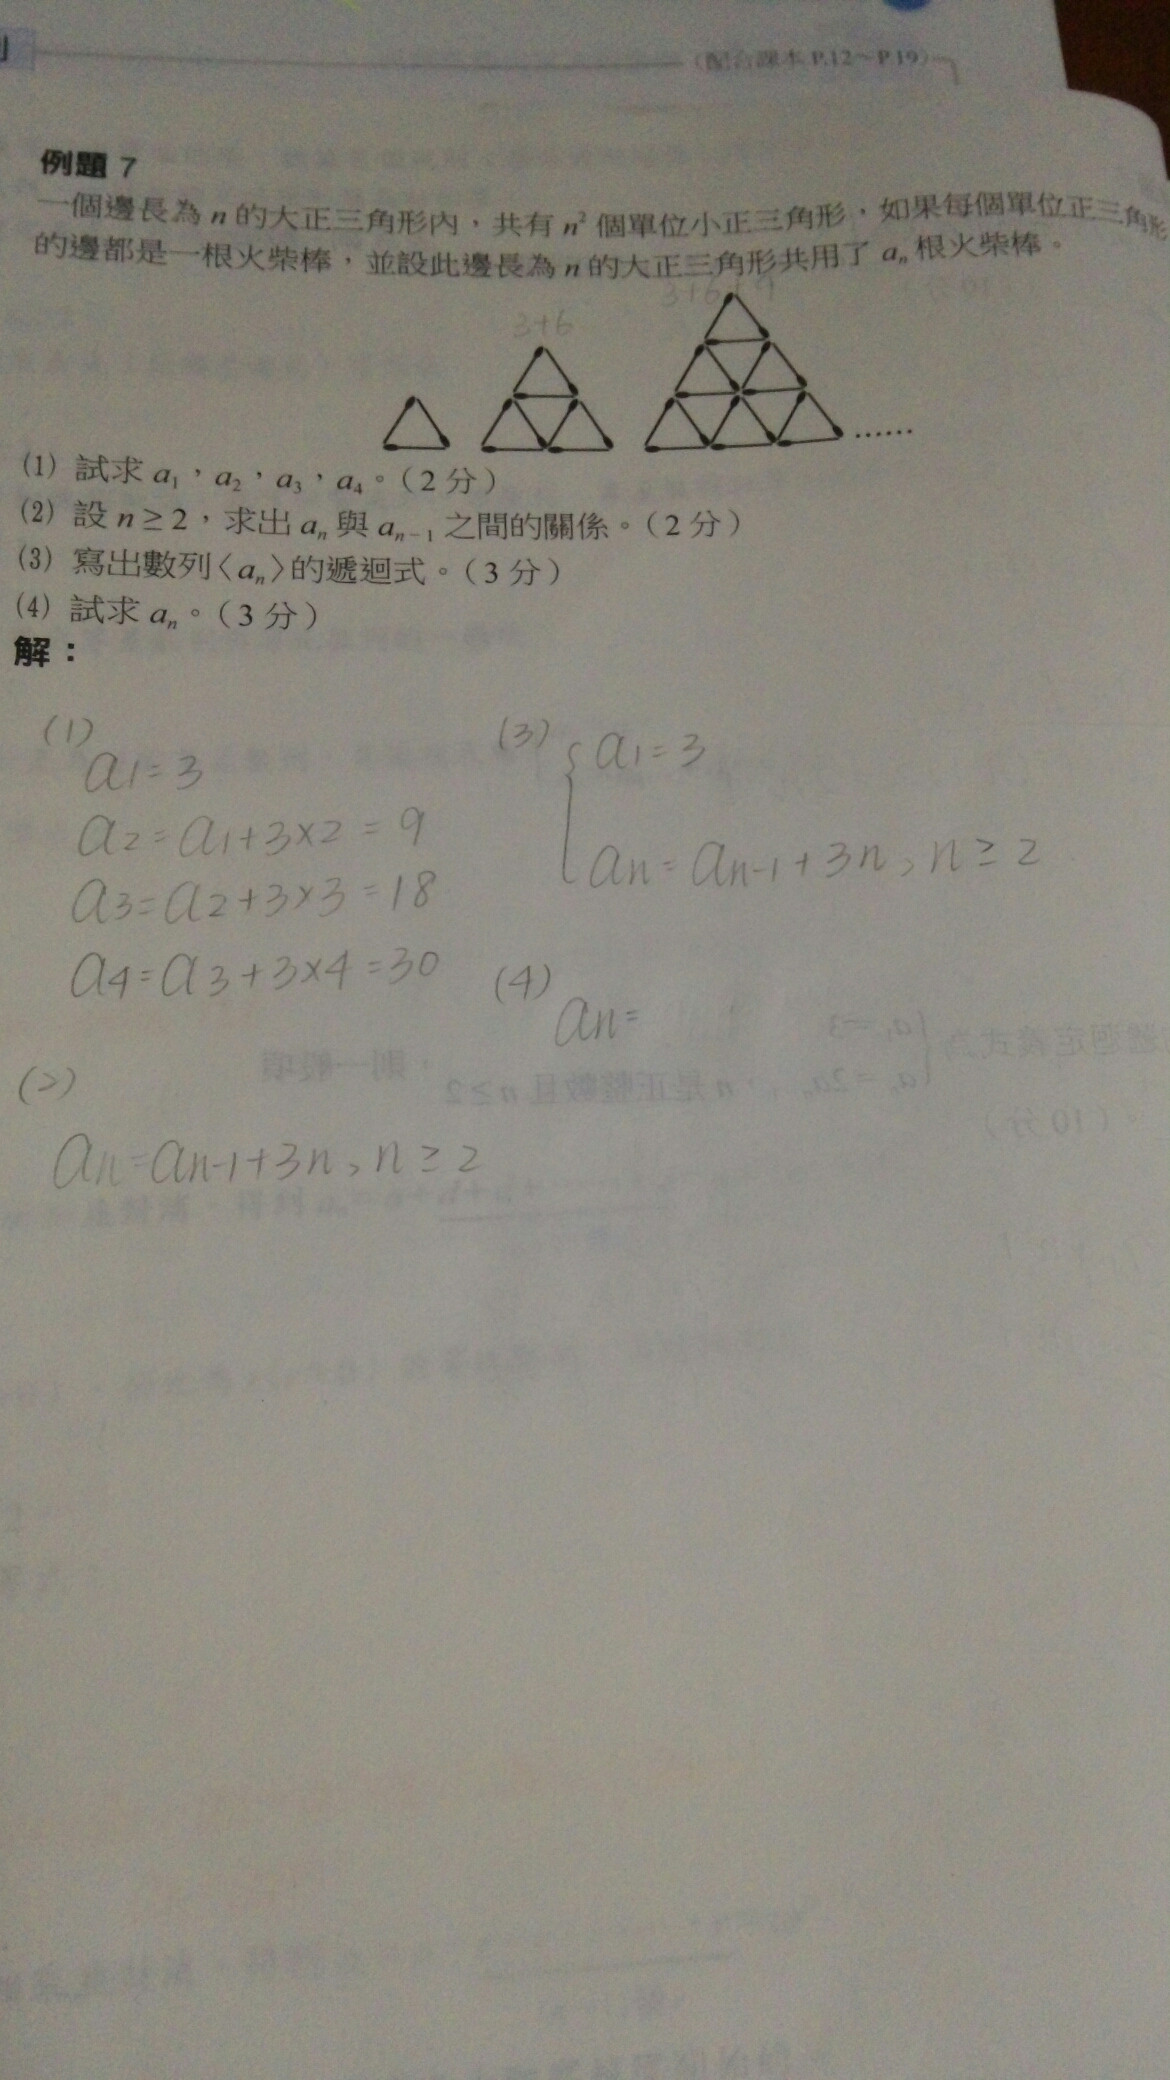 (配合課本 P.12~P.19)
例題 7
一個邊長為 n 的大正三角形內，共有 n² 個單位小正三角形，如果每個單位正三角形
的邊都是一根火柴棒，並設此邊長為 n 的大正三角形共用了 aₙ 根火柴棒。
3+6+9
3+6
……
(1) 試求 a₁，a₂，a₃，a₄。(2 分)
(2) 設 n≥2，求出 aₙ 與 aₙ₋₁ 之間的關係。(2 分)
(3) 寫出數列〈aₙ〉的遞迴式。(3 分)
(4) 試求 aₙ。(3 分)
解：
(1)
a1=3
a2=a1+3×2=9
a3=a2+3×3=18
a4=a3+3×4=30
(2)
an=an-1+3n, n≥2
(3)
a1=3
an=an-1+3n, n≥2
(4)
an=